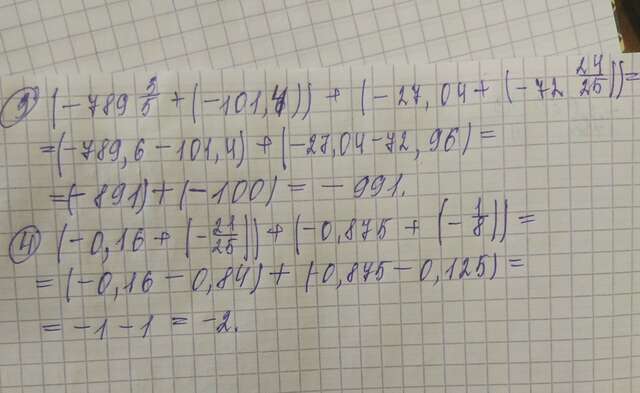 3) (-789 3/5 + (-101,4)) + (-27,04 + (-72 24/25)) =
= (-789,6 - 101,4) + (-27,04 - 72,96) =
= (-891) + (-100) = -991.
4) (-0,16 + (-21/25)) + (-0,875 + (-1/8)) =
= (-0,16 - 0,84) + (-0,875 - 0,125) =
= -1 - 1 = -2.